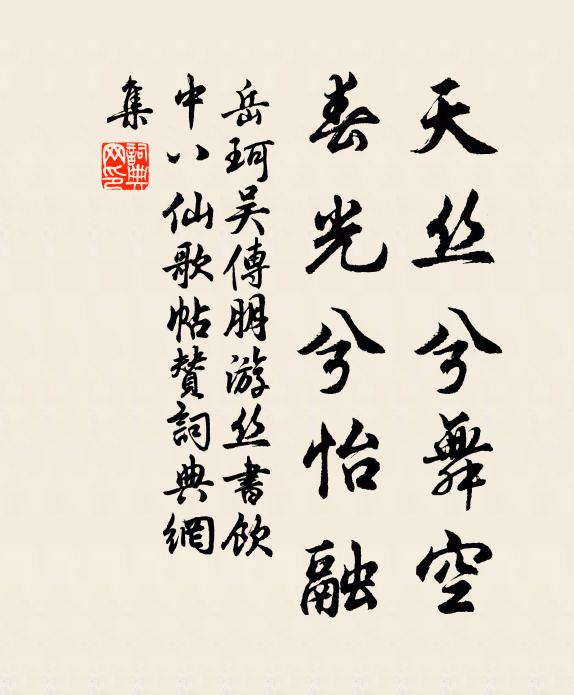 天丝兮舞空
春光兮怡融
岳珂吴傅朋游丝书饮
中八仙歌帖赞詞典網
集
詞典網印